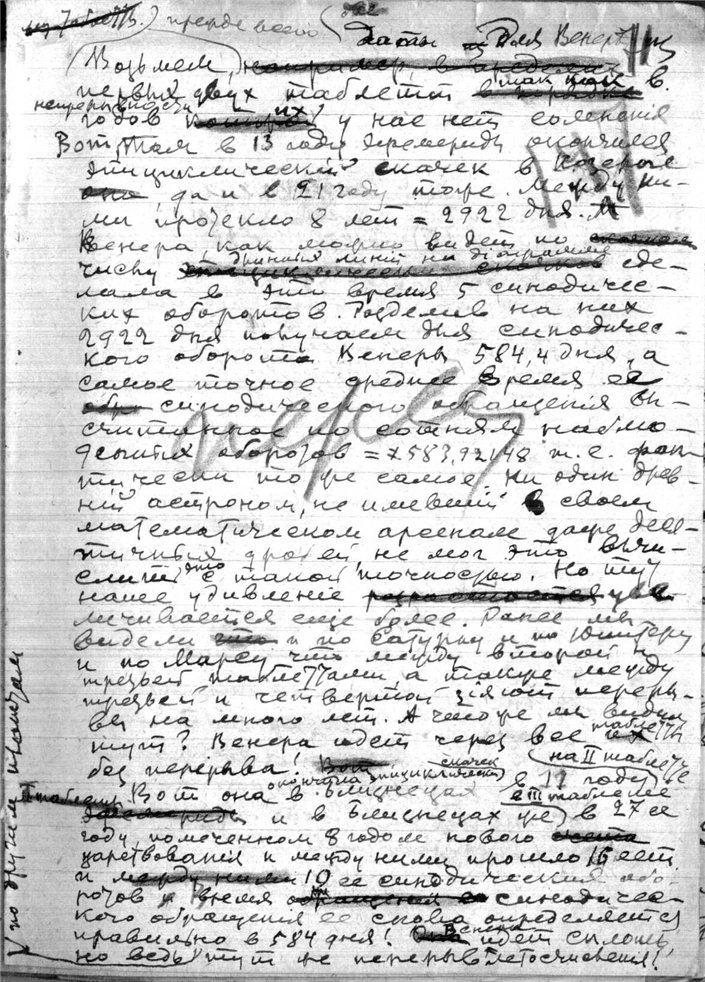 прежде всего две
даты для Венеры
Возьмем
первых двух таблетт так как в
непрерывности
годов их у нас нет сомнения
Вот там в 13 году еремериду окончился
эпициклический скачек в Козероге
да и в 21 году тоже. Между ни-
ми протекло 8 лет = 2922 дня.
Венера, как можно видеть по
числу линий на диаграмме сде-
лала в это время 5 синодичес-
ких оборотов. Разделив на них
2922 дня получаем для синодичес-
кого оборота Венеры 584,4 дня, а
самое точное среднее время ее
синодического обращения вы-
считанное по сотням наблю-
оборотов = 583,92148 т.е. фак-
тически то же самое. Ни один древ-
ний астроном, не имевший в своем
математическом арсенале даже деся-
тичных дробей, не мог это вычи-
слить это с такой точностью. Но тут
наше удивление уве-
личивается еще более. Ранее мы
видели и по Сатурну и по Юпитеру
и по Марсу что между второй и
третьей таблеттами, а также между
третьей и четвертой зияют переры-
вы на много лет. А что же мы видим
тут? Венера идет через все таблетты
без перерыва!
Вот она окончила эпициклический скачек в Близнецах в 11 году на II таблетте
и в Близнецах же в 27 ее
году помеченном 8 годом нового
царствования и между ними прошло 16 лет
и 10 ее синодических обо-
ротов и время синодичес-
кого обращения ее снова определяется
правильно в 584 дня! Венера идет сплошь,
но ведь тут же перерыв летосчисления!
по другим планетам
перес